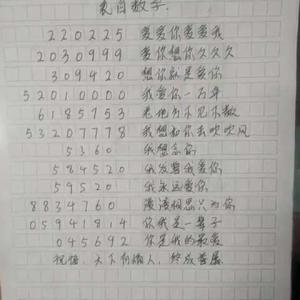 表白数字.
220225 爱爱你爱爱我
2030999 爱你想你久久久
309420 想你就是爱你
52010000 我爱你一万年
6185753
53207778 我想和你去吹吹风
5360 我想念你
584520 我发誓我爱你
59520 我永远爱你
8834760 漫漫相思只为你
05941814 你我是一辈子
045692 你是我的最爱
祝福: 天下有情人, 终成眷属